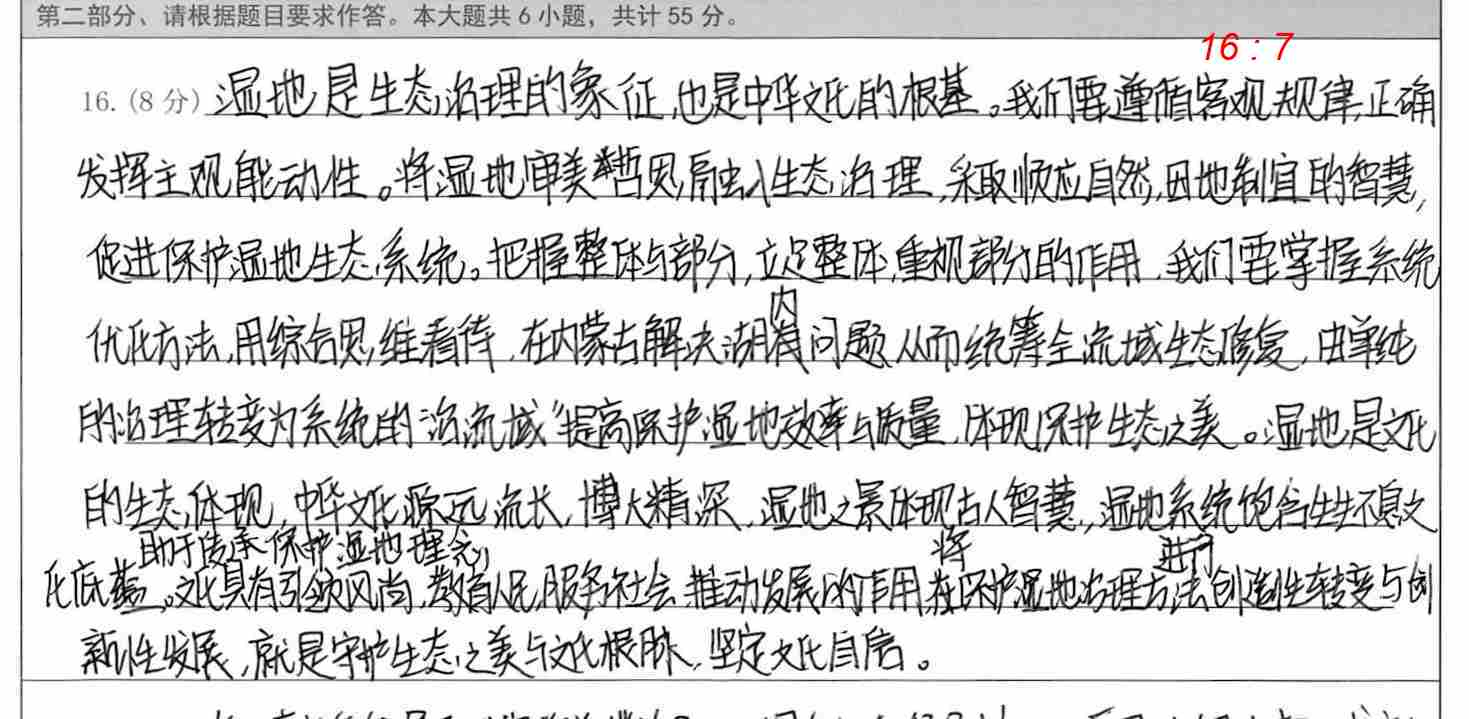 第二部分、请根据题目要求作答。本大题共 6 小题，共计 55 分。
16 : 7
16. (8 分) 湿地是生态治理的象征,也是中华文化的根基。我们要遵循客观规律,正确
发挥主观能动性。将湿地审美哲思融入生态治理,采取顺应自然,因地制宜的智慧,
促进保护湿地生态系统。把握整体与部分,立足整体,重视部分的作用,我们要掌握系统
内
优化方法,用综合思维看待,在内蒙古解决湖问题,从而统筹全流域生态修复,由单纯
的治理转变为系统的治流域"提高保护湿地效率与质量,体现保护生态之美。湿地是文化
的生态体现,中华文化源远流长,博大精深,湿地之景体现古人智慧,湿地系统饱含生生不息文
助于传承保护湿地理念, 将 进行
化底蕴。文化具有引领风尚,教育人民,服务社会,推动发展的作用,在保护湿地治理方法创造性转变与创
新性发展,就是守护生态之美与文化根脉,坚定文化自信。